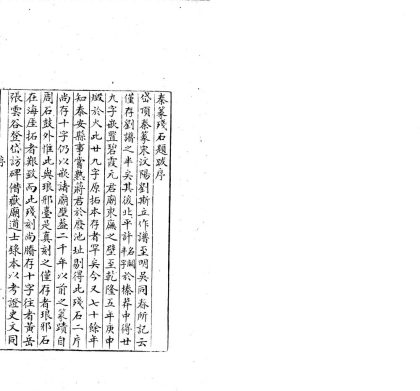 秦篆殘石題跋序
岱頂秦篆宋汶陽劉斯立作譜至明吳同春所記云
僅存劉譜之半矣其後北平許名 於榛莽中得廿
九字嵌置碧霞元君廟東廡之壁至乾隆五年庚申
燬於火此廿九字原拓本存者罕矣今又七十餘年
知泰安縣事常熟蔣君於廢池址剔得此殘石二片
尚存十字仍以嵌諸廟壁蓋二千年以前之篆蹟自
周石鼓外惟此與琅邪臺是真刻之僅存者琅邪石
在海厓拓者艱致而此殘刻尚賸存十字往者黃岳
張雲谷登岱訪碑借嶽廟道士錄本以考證史文同
序